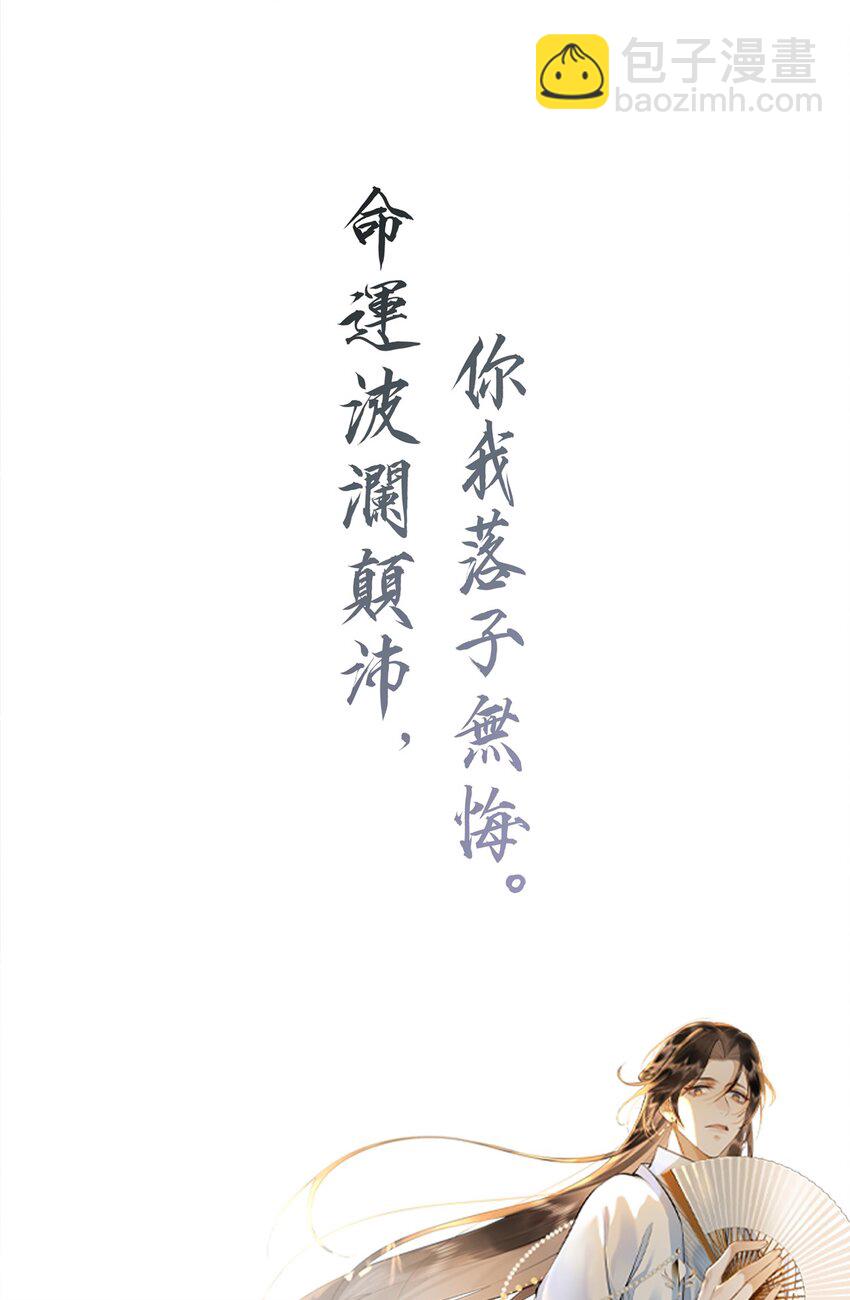 包子漫畫
baozimh.com
命運波瀾顛沛，
你我落子無悔。